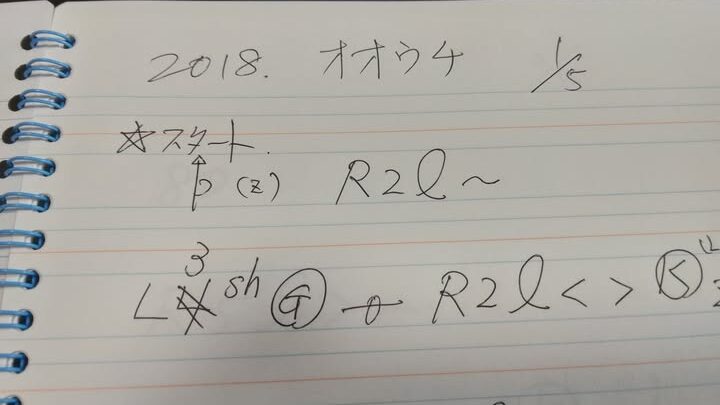 2018. オオウチ 1/5
☆スタート.
↑p (z) R2l~
L 3 sh G R2l<> K